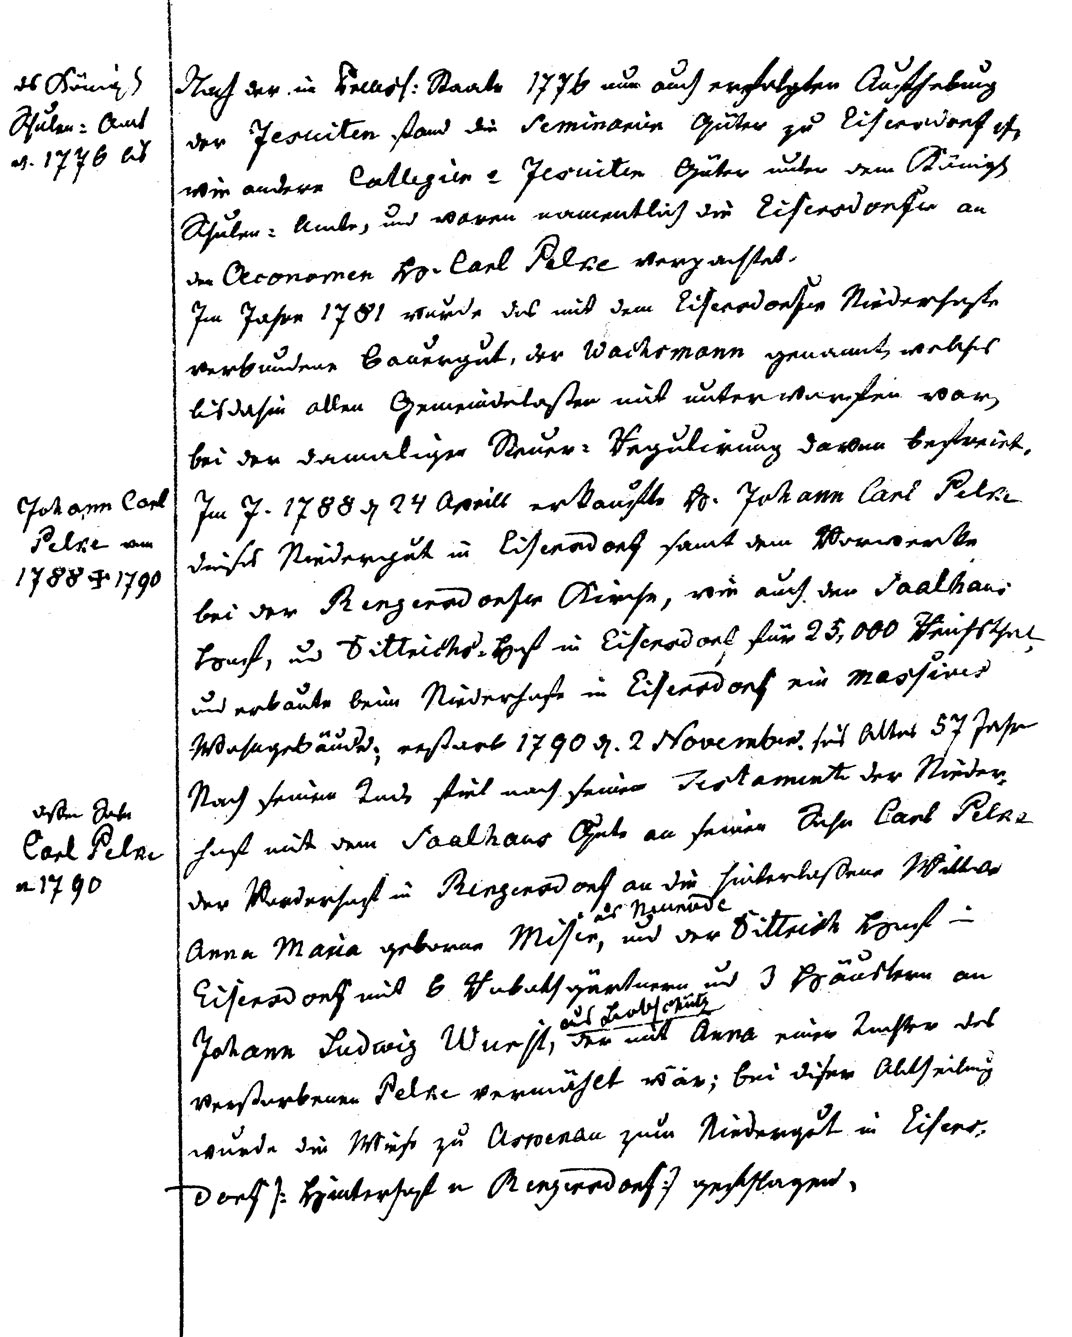 des Königl
Schulen= Amt
v. 1776 bis
Nach der in Preuss: Staate 1776 nun auch erfolgten Aufhebung
der Jesuiten stand die Seminarien Güter zu Eisersdorf
wie andere Collegien = Jesuiten Güter unter dem Königl
Schulen= Amte, und waren namentlich die Eisersdorfer an
den Oeconomen Hr. Carl Pelke verpachtet.
Im Jahre 1781 wurde das mit dem Eisersdorfer Niederhofe
verbundene Bauergut, der Wachsmann genannt, welches
bisdahin allen Gemeindelasten mit unterworfen war,
bei der damaligen Steuer= Regulirung davon befreiet.
Johann Carl
Pelke von
1788 ✠ 1790
Im J. 1788 d 24 Aprill erkaufte Hr. Johann Carl Pelke
dieses Niedergut in Eisersdorf samt dem Vorwerke
bei der Rengersdorfer Kirche, wie auch den Saalhaus
Hof, und Dittrichs=Hof in Eisersdorf für 25,000 Reichsthal,
und erbaute beim Niederhofe in Eisersdorf ein massives
Wohngebäude; er starb 1790 d. 2 November. seines Alters 57 Jahr
Nach seinem Tode fiel nach seinem Testamente der Nieder-
hof mit dem Saalhaus Gute an seinen Sohn Carl Pelke
dessen Sohn
Carl Pelke
v 1790
der Vorderhof in Rengersdorf an die hinterlaßene Wittwe
Anna Maria geborne Misie, und der Dittrich Hof in
aus Neurode
Eisersdorf mit 6 Robothgärtnern und 3 Häuslern an
Johann Ludwig Wurst, der mit Anna einer Tochter des
aus Leobschütz
verstorbenen Pelke vermählt war; bei dieser Abtheilung
wurde die Wiese zu Aspenau zum Niedergut in Eisers-
dorf /: Hinterhof v Rengersdorf :/ geschlagen.